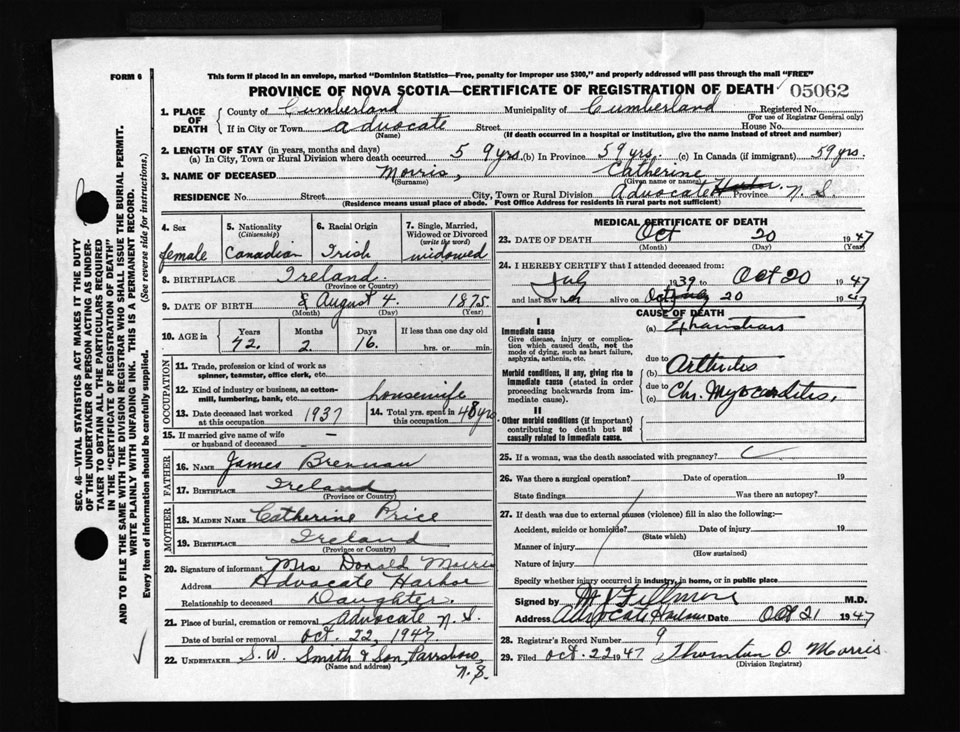 FORM 6
This form if placed in an envelope, marked "Dominion Statistics—Free, penalty for improper use $300," and properly addressed will pass through the mail "FREE"
PROVINCE OF NOVA SCOTIA—CERTIFICATE OF REGISTRATION OF DEATH 05062
1. PLACE OF DEATH County of Cumberland Municipality of Cumberland Registered No.
(For use of Registrar General only)
If in City or Town Advocate Street House No.
(Name) (If death occurred in a hospital or institution, give the name instead of street and number)
2. LENGTH OF STAY (in years, months and days)
(a) In City, Town or Rural Division where death occurred 59 yrs. (b) In Province 59 yrs. (c) In Canada (if immigrant) 59 yrs.
3. NAME OF DECEASED Morris, Catherine
(Surname) (Given name or names)
RESIDENCE No. Street City, Town or Rural Division Advocate Harbor Province N. S.
(Residence means usual place of abode. Post Office Address for residents in rural parts not sufficient)
4. Sex 5. Nationality (Citizenship) 6. Racial Origin 7. Single, Married, Widowed or Divorced (write the word)
female Canadian Irish widowed
8. BIRTHPLACE Ireland.
(Province or Country)
9. DATE OF BIRTH August 4. 1875
(Month) (Day) (Year)
10. AGE in Years Months Days If less than one day old
72. 2. 16. hrs. or min.
OCCUPATION
11. Trade, profession or kind of work as spinner, teamster, office clerk, etc.
12. Kind of industry or business, as cotton-mill, lumbering, bank, etc. housewife
13. Date deceased last worked at this occupation 1937 14. Total yrs. spent in this occupation 48 yrs
15. If married give name of wife or husband of deceased —
FATHER
16. NAME James Brennan
17. BIRTHPLACE Ireland
(Province or Country)
MOTHER
18. MAIDEN NAME Catherine Price
19. BIRTHPLACE Ireland
(Province or Country)
20. Signature of informant Mrs Donald Morris
Address Advocate Harbor
Relationship to deceased Daughter.
21. Place of burial, cremation or removal Advocate N. S.
Date of burial or removal Oct. 22, 1947
22. UNDERTAKER S. W. Smith & Son, Parrsboro,
(Name and address) N. S.
MEDICAL CERTIFICATE OF DEATH
23. DATE OF DEATH Oct 20 1947
(Month) (Day) (Year)
24. I HEREBY CERTIFY that I attended deceased from:
July 1939 to Oct 20 1947
and last saw h alive on Oct 20 1947
CAUSE OF DEATH
I
Immediate cause (a)
Give disease, injury or complication which caused death, not the mode of dying, such as heart failure, asphyxia, asthenia, etc.
due to
Morbid conditions, if any, giving rise to immediate cause (stated in order proceeding backwards from immediate cause). (b) Arthritis
due to
(c) Chr. Myocarditis,
II
Other morbid conditions (if important) contributing to death but not causally related to immediate cause.
25. If a woman, was the death associated with pregnancy?
26. Was there a surgical operation? Date of operation 19
State findings Was there an autopsy?
27. If death was due to external causes (violence) fill in also the following:—
Accident, suicide or homicide? Date of injury 19
(State which)
Manner of injury
(How sustained)
Nature of injury
Specify whether injury occurred in industry, in home, or in public place
Signed by M J Fillmore M.D.
Address Advocate Harbour Date Oct 21 1947
28. Registrar's Record Number 9
29. Filed Oct. 22 1947 Thornton O. Morris
(Division Registrar)
SEC. 46—VITAL STATISTICS ACT MAKES IT THE DUTY
OF THE UNDERTAKER OR PERSON ACTING AS UNDER-
TAKER TO OBTAIN ALL THE PARTICULARS REQUIRED
IN THE "CERTIFICATE OF REGISTRATION OF DEATH"
AND TO FILE THE SAME WITH THE DIVISION REGISTRAR WHO SHALL ISSUE THE BURIAL PERMIT.
WRITE PLAINLY WITH UNFADING INK. THIS IS A PERMANENT RECORD.
Every item of information should be carefully supplied. (See reverse side for instructions.)